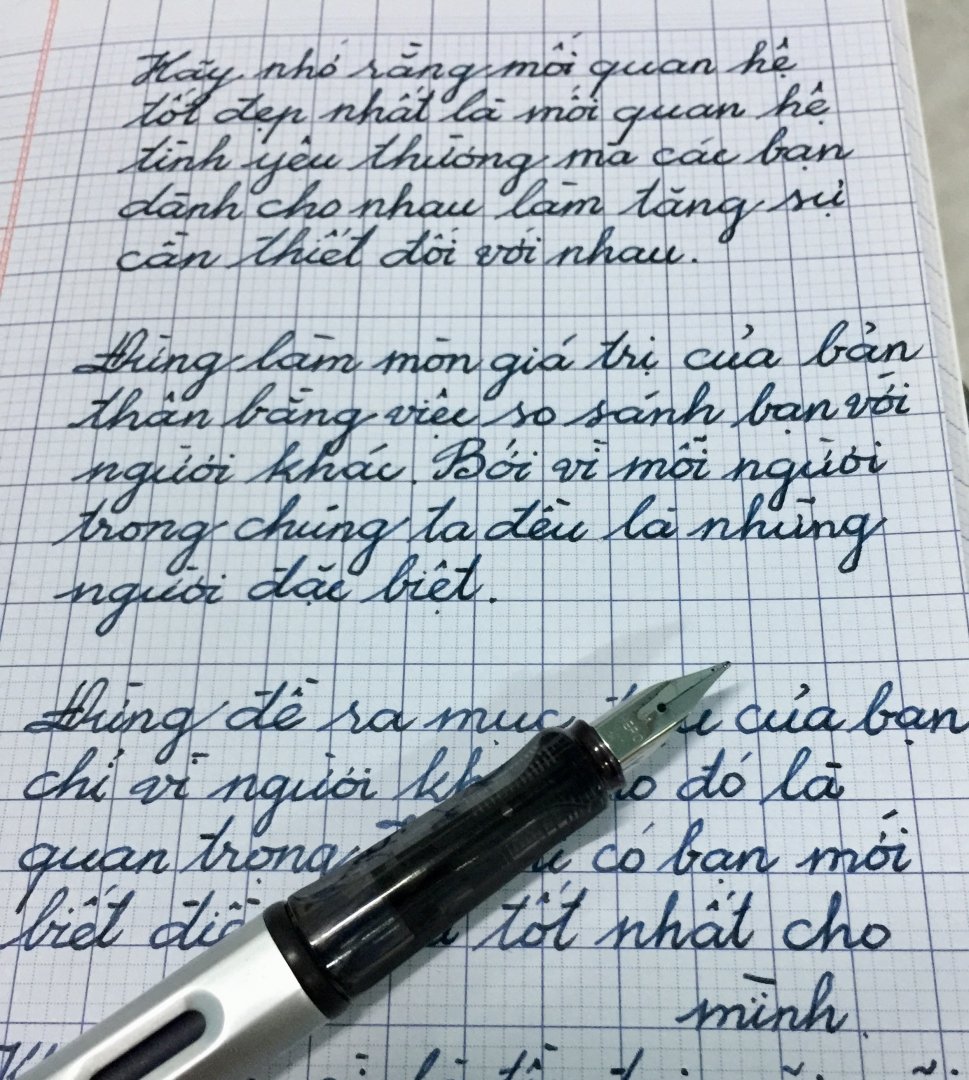 Hãy nhớ rằng mối quan hệ
tốt đẹp nhất là mối quan hệ
tình yêu thương mà các bạn
dành cho nhau làm tăng sự
cần thiết đối với nhau.
Đừng làm mòn giá trị của bản
thân bằng việc so sánh bạn với
người khác. Bởi vì mỗi người
trong chúng ta đều là những
người đặc biệt.
Đừng đề ra mục của bạn
chỉ vì người đó là
quan trọng có bạn mới
biết tốt nhất cho
mình.